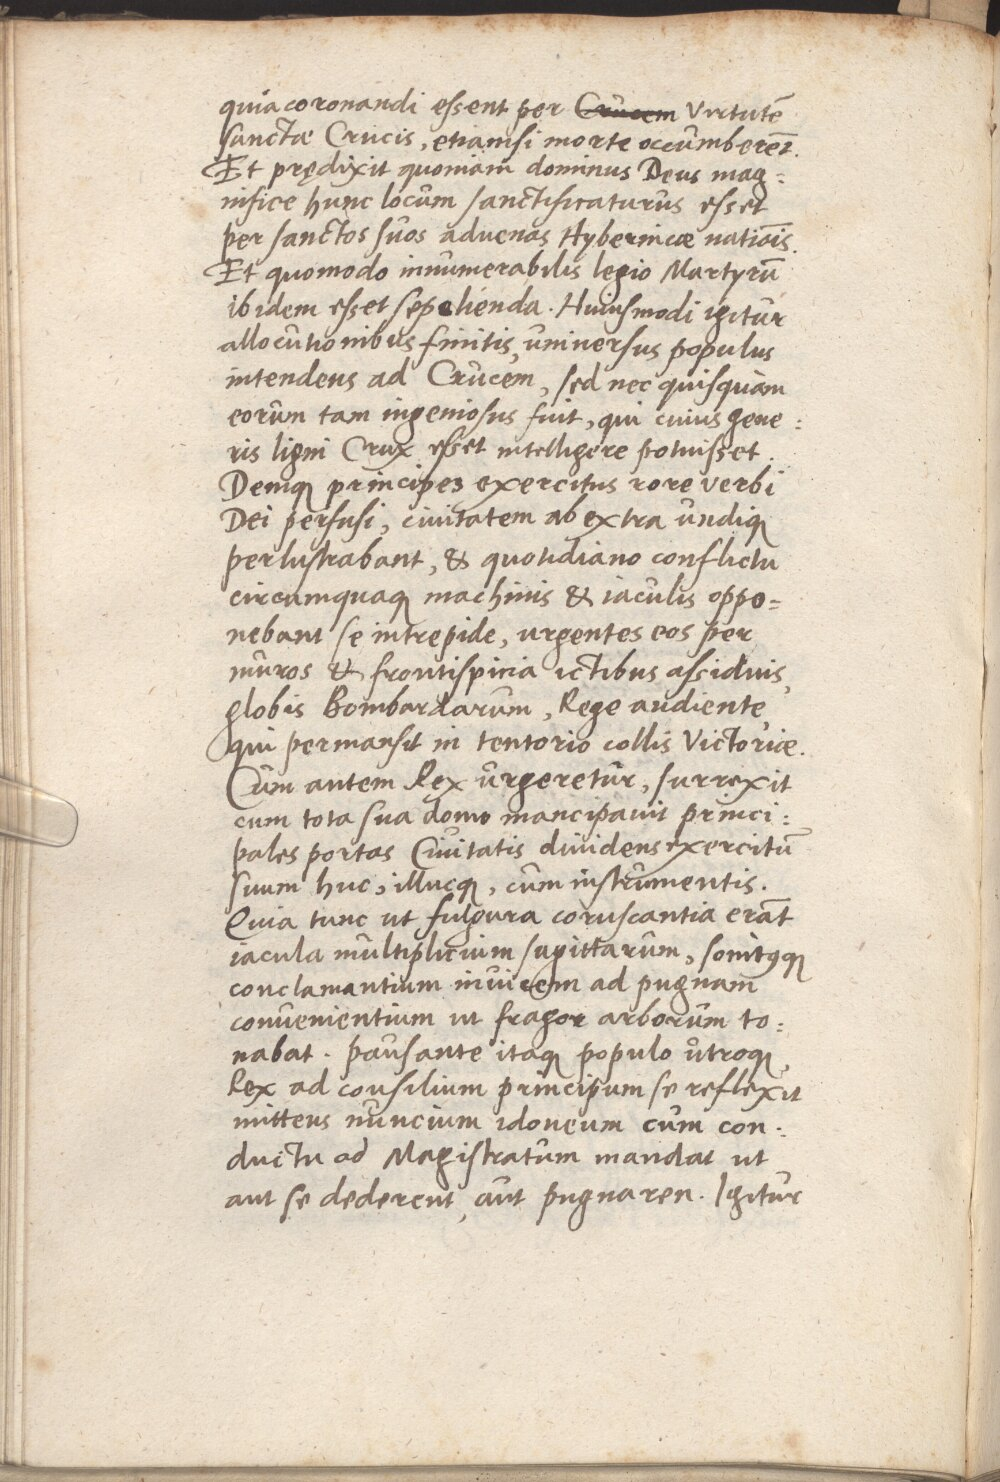 quia coronandi essent per Crucem Virtutē
sanctæ Crucis, etiamsi morte occumberēt.
Et prędixit quoniam dominus Deus mag=
nifice hunc locum sanctificaturus esset
per sanctos suos aduenas Hybernicæ natiōis.
Et quomodo innumerabilis legio Martyrū
ibidem esset sepelienda. Huiusmodi igitur
allocutionibus finitis, uniuersus populus
intendens ad Crucem, sed nec quisquam
eorum tam ingeniosus fuit, qui cuius gene=
ris ligni Crux esset intelligere potuisset.
Deniq principes exercitus rore verbi
Dei perfusi, ciuitatem ab extra undiq
perlustrabant, & quotidiano conflictu
circumquaq machinis & iaculis oppo=
nebant se intrepide, urgentes eos per
muros & frontispicia ictibus assiduis,
globis Bombardarum, Rege audiente,
qui permansit in tentorio collis Victoriæ.
Cum autem Rex urgeretur, surrexit
cum tota sua domo mancipauit princi=
pales portas Ciuitatis diuidens exercitū
suum huc, illucq, cum instrumentis.
Quia tunc ut fulgura coruscantia erāt
iacula multiplicium sagittarum, sonitꝰq
conclamantium inuicem ad pugnam
conuenientium ut fragor arborum to=
nabat. Pausante itaq populo utroq,
Rex ad consilium principum se reflexit
mittens nuncium idoneum cum con=
ductu ad Magistratum mandat ut
aut se dederent, aut pugnaren. Igitur